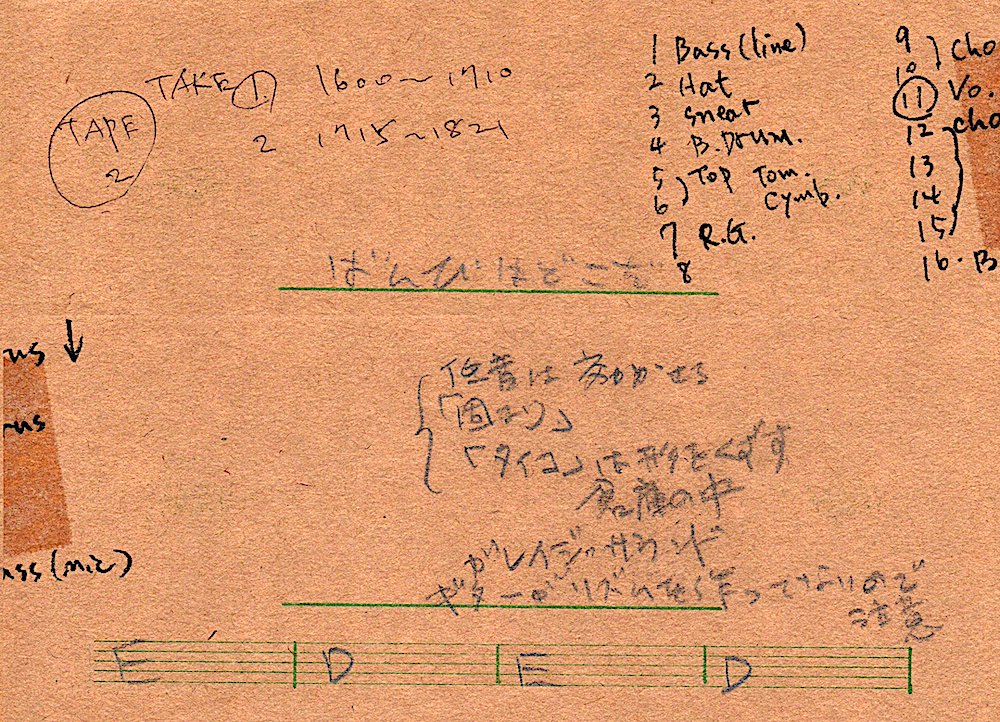 TAPE
2
TAKE 1 1600〜1710
2 1715〜1821
1 Bass (line)
2 Hat
3 snear
4 B.Drum.
5 Top Tom.
6 Cymb.
7 R.G.
8
9
10 Cho
11 Vo.
12 cho
13
14
15
16. B
ばんびはどこだ
↓
us
us
ass (mic)
「固まり」
「タイコ」は形をくずす
倉庫の中
ガレイジ・サウンド
ギターがリズムを作っていないので
注意
E D E D